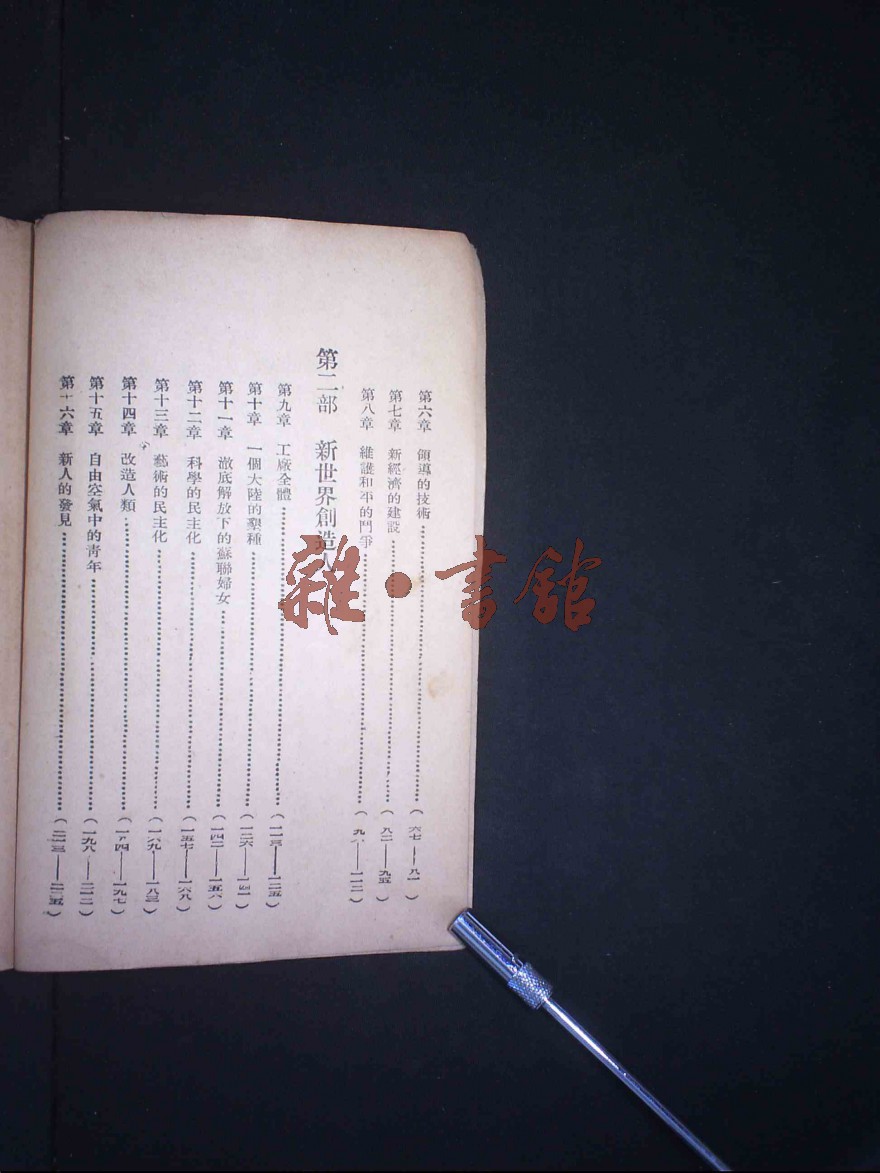 第六章　領導的技術…………（六七——八一）
第七章　新經濟的建設…………（八二——九五）
第八章　維護和平的鬥爭…………（九六——一一二）
第二部　新世界創造人
第九章　工廠全體…………（一一三——一二五）
第十章　一個大陸的墾種…………（一二六——一四一）
第十一章　澈底解放下的蘇聯婦女…………（一四二——一五六）
第十二章　科學的民主化…………（一五七——一六八）
第十三章　藝術的民主化…………（一六九——一八三）
第十四章　改造人類…………（一八四——一九七）
第十五章　自由空氣中的青年…………（一九八——二一二）
第十六章　新人的發見…………（二一三——二二五）
雜·書館